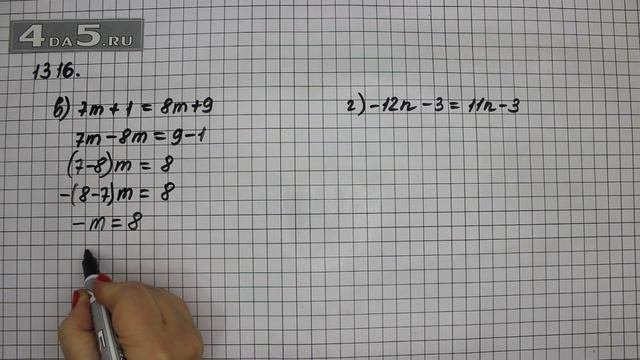 4DA5.RU
1316.
в) 7m + 1 = 8m + 9
7m - 8m = 9 - 1
(7-8)m = 8
-(8-7)m = 8
- m = 8
г) -12n - 3 = 11n - 3